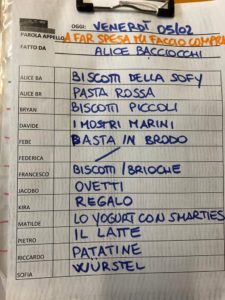 OGGI: VENERDÌ 05/02
PAROLA APPELLO A FAR SPESA MI FACCIO COMPRA
FATTO DA ALICE BACCIOCCHI
ALICE BA BISCOTTI DELLA SOFY
ALICE BR PASTA ROSSA
BRYAN BISCOTTI PICCOLI
DAVIDE I MOSTRI MARINI
FEBE PASTA IN BRODO
FEDERICA
FRANCESCO BISCOTTI/BRIOCHE
JACOBO OVETTI
KIRA REGALO
MATILDE LO YOGURT CON SMARTIES
PIETRO IL LATTE
RICCARDO PATATINE
SOFIA WÜRSTEL